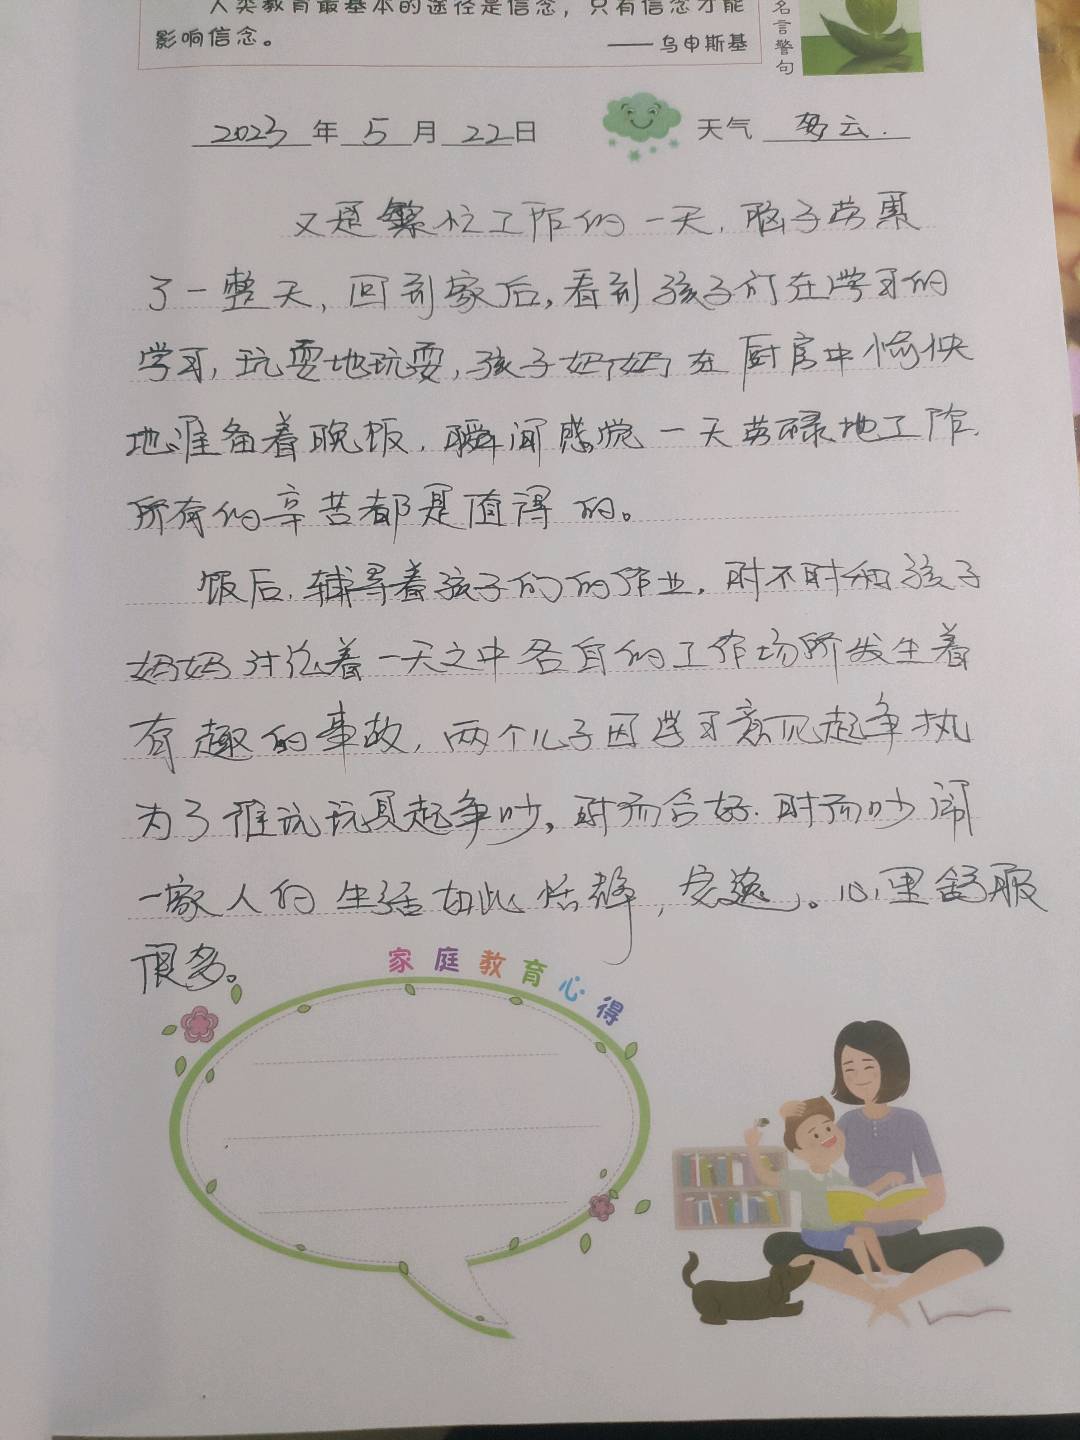 人类教育最基本的途径是信念，只有信念才能
影响信念。
——乌申斯基
名言警句
2023年5月22日
天气 多云.
又是繁忙工作的一天，脑子劳累
了一整天，回到家后，看到孩子们在学习的
学习，玩耍地玩耍，孩子妈妈在厨房中愉快
地准备着晚饭，瞬间感觉一天劳碌地工作，
所有的辛苦都是值得的。
饭后，辅导着孩子们的作业，时不时和孩子
妈妈讨论着一天之中各自的工作场所发生着
有趣的事故，两个儿子因学习意见起争执
为了谁玩玩具起争吵，时而合好.时而吵闹
一家人的生活如此恬静，安逸。心里舒服
很多。
家庭教育心得